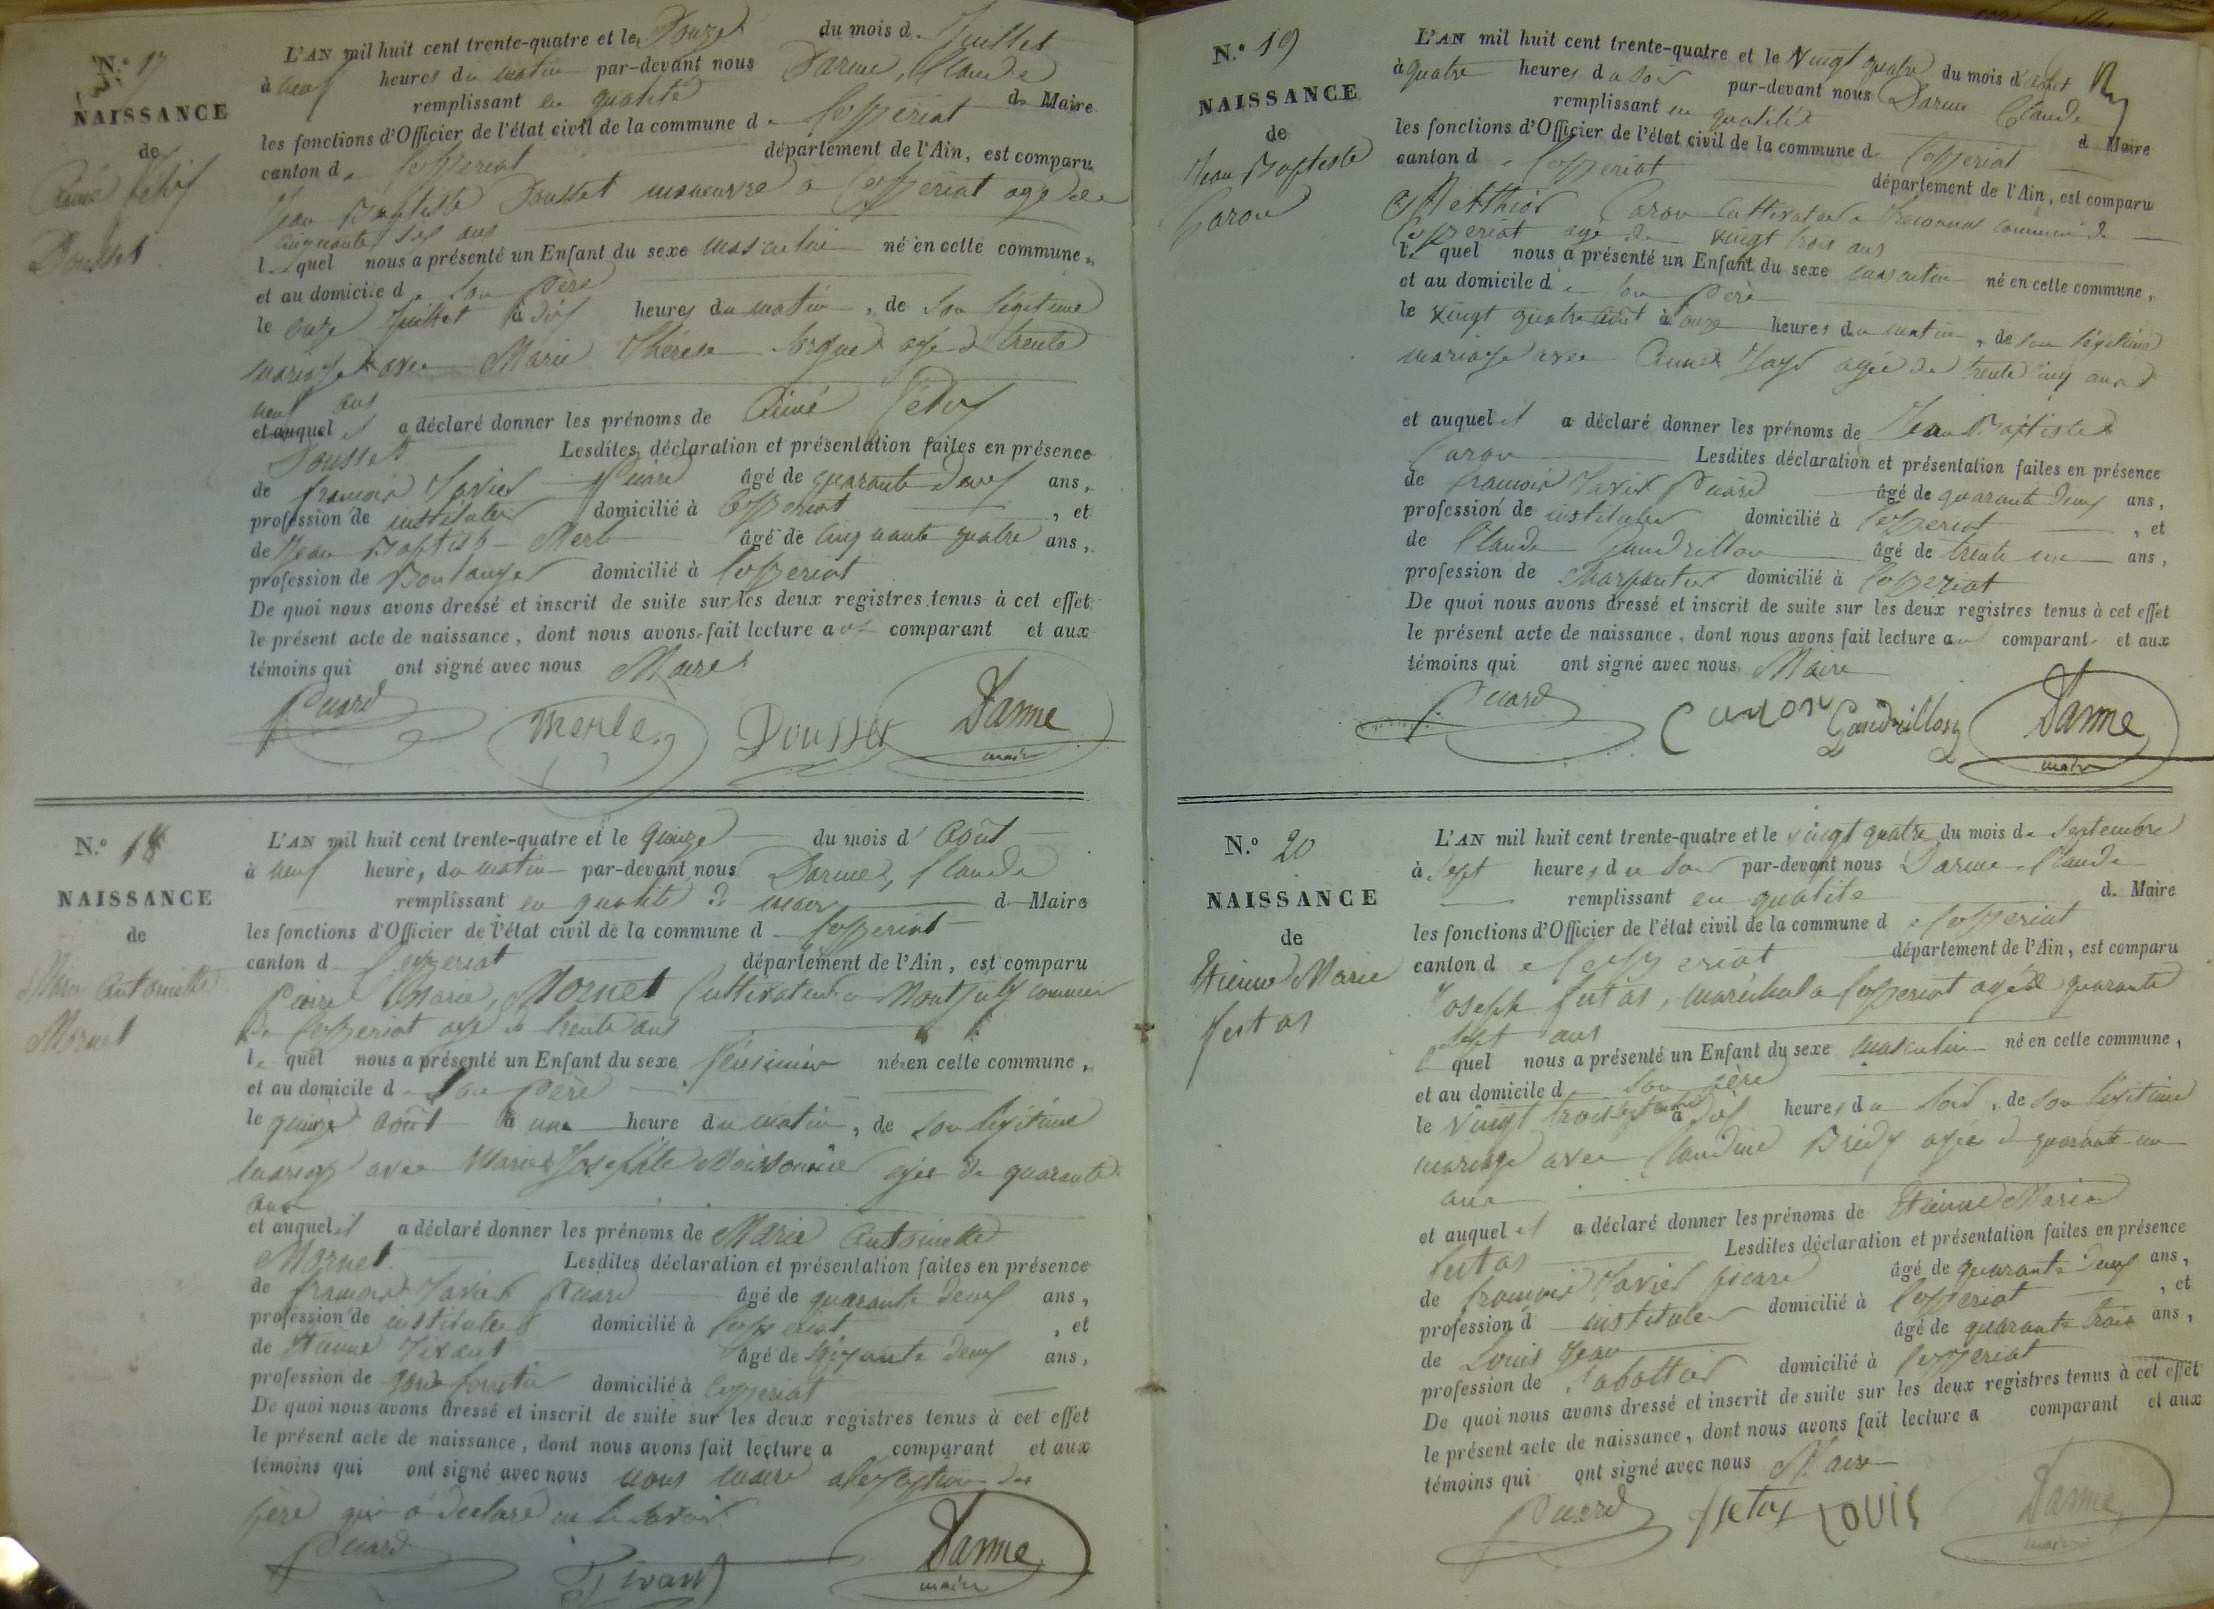 N.° 17
NAISSANCE
de
Dousset
L'AN mil huit cent trente-quatre et le Douze du mois de Juillet
à neuf heures du matin par-devant nous Darme, Claude
remplissant en qualité de Maire
les fonctions d'Officier de l'état civil de la commune de Ceyzeriat
canton de Ceyzeriat département de l'Ain, est comparu
Jean Baptiste Dousset manoeuvre a Ceyzeriat agé de
cinquante six ans
lequel nous a présenté un Enfant du sexe masculin né en cette commune,
et au domicile de son père
le onze Juillet à dix heures du matin, de son légitime
mariage avec Marie Thérèse agé de trente
neuf ans
et auquel il a déclaré donner les prénoms de Aimé
Dousset Lesdites déclaration et présentation faites en présence
de françois Xavier Picard âgé de quarante deux ans,
profession de instituteur domicilié à Ceyzeriat, et
de Jean Baptiste Merle âgé de cinquante quatre ans,
profession de Boulanger domicilié à Ceyzeriat
De quoi nous avons dressé et inscrit de suite sur les deux registres tenus à cet effet
le présent acte de naissance, dont nous avons fait lecture au comparant et aux
témoins qui ont signé avec nous Maire
Picard Merle Dousset Darme
maire
N.° 18
NAISSANCE
de
Marie Antoinette
Mornet
L'AN mil huit cent trente-quatre et le quinze du mois d'Août
à neuf heure, du matin par-devant nous Darme, Claude
remplissant en qualité de maire de Maire
les fonctions d'Officier de l'état civil de la commune d Ceyzeriat
canton d Ceyzeriat département de l'Ain, est comparu
Pierre Marie, Mornet Cultivateur a Montjuly commune
de Ceyzeriat agé de trente ans
le quel nous a présenté un Enfant du sexe féminin né en cette commune,
et au domicile de son père
le quinze août à une heure du matin, de son légitime
mariage avec Marie Josephte Moissonnier agée de quarante
ans
et auquel il a déclaré donner les prénoms de Marie Antoinette
Mornet Lesdites déclaration et présentation faites en présence
de françois Xavier Picard âgé de quarante deux ans,
profession de instituteur domicilié à Ceyzeriat, et
de Etienne Tixant âgé de soixante deux ans,
profession de garde forestier domicilié à Ceyzeriat
De quoi nous avons dressé et inscrit de suite sur les deux registres tenus à cet effet
le présent acte de naissance, dont nous avons fait lecture a comparant et aux
témoins qui ont signé avec nous maire à l'exception du
père qui a déclaré ne le savoir
Picard Darme
maire
N.° 19
NAISSANCE
de
Jean Baptiste
Caron
L'AN mil huit cent trente-quatre et le Vingt quatre du mois d'Août
à quatre heures du soir par-devant nous Darme Claude
remplissant en qualité de Maire
les fonctions d'Officier de l'état civil de la commune de Ceyzeriat
canton de Ceyzeriat département de l'Ain, est comparu
Caron Cultivateur a commune de
Ceyzeriat age de vingt trois ans
le quel nous a présenté un Enfant du sexe masculin né en cette commune,
et au domicile de son père
le vingt quatre août à onze heures du matin, de son légitime
mariage avec agée de trente cinq ans
et auquel il a déclaré donner les prénoms de Jean Baptiste
Caron Lesdites déclaration et présentation faites en présence
de françois Xavier Picard âgé de quarante deux ans,
profession de instituteur domicilié à Ceyzeriat, et
de Claude Gandrillon âgé de trente un ans,
profession de Charpentier domicilié à Ceyzeriat
De quoi nous avons dressé et inscrit de suite sur les deux registres tenus à cet effet
le présent acte de naissance, dont nous avons fait lecture au comparant et aux
témoins qui ont signé avec nous Maire
Picard Caron Gandrillon Darme
maire
N.° 20
NAISSANCE
de
Etienne Marie
futas
L'AN mil huit cent trente-quatre et le vingt quatre du mois de Septembre
à Sept heures du soir par-devant nous Darme Claude
remplissant en qualité de Maire
les fonctions d'Officier de l'état civil de la commune de Ceyzeriat
canton de Ceyzeriat département de l'Ain, est comparu
Joseph futas, maréchal a Ceyzeriat agé de quarante
sept ans
le quel nous a présenté un Enfant du sexe masculin né en cette commune,
et au domicile d son père
le Vingt trois septembre à dix heures du soir, de son légitime
mariage avec Claudine agée de quarante un
ans
et auquel il a déclaré donner les prénoms de Etienne Marie
futas Lesdites déclaration et présentation faites en présence
de françois Xavier picard âgé de quarante deux ans,
profession d instituteur domicilié à Ceyzeriat, et
de Louis Jean âgé de quarante trois ans,
profession de Sabottier domicilié à Ceyzeriat
De quoi nous avons dressé et inscrit de suite sur les deux registres tenus à cet effet
le présent acte de naissance, dont nous avons fait lecture a comparant et aux
témoins qui ont signé avec nous Maire
Picard futas LOUIS Darme
maire